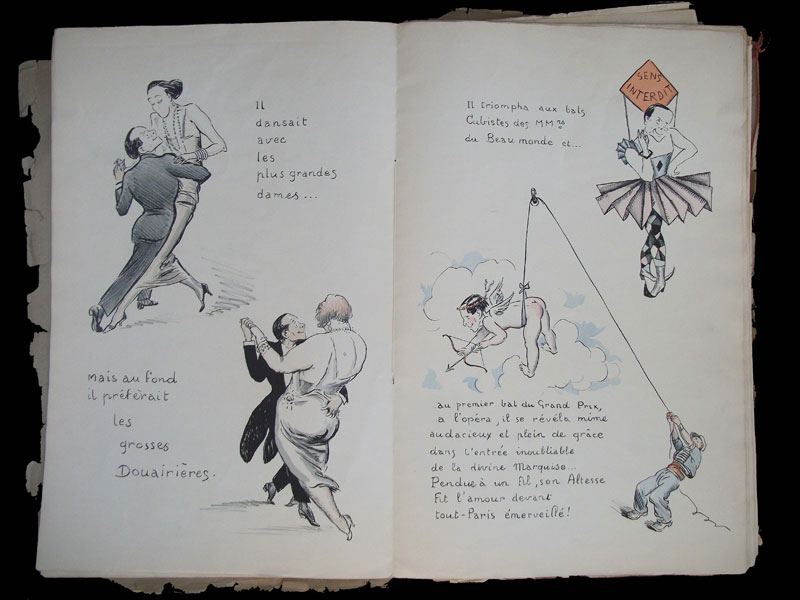 Il
dansait
avec
les
plus grandes
dames...
Mais au fond
il préférait
les
grosses
Douairières.
SENS
INTERDIT
Il triompha aux bals
Cubistes des MMrs
du Beau monde et...
au premier bal du Grand Prix,
a l'opéra, il se révéla mime
audacieux et plein de grâce
dans l'entrée inoubliable
de la divine Marquise...
Pendue à un fil, son Altesse
Fit l'amour devant
tout-Paris émerveillé!